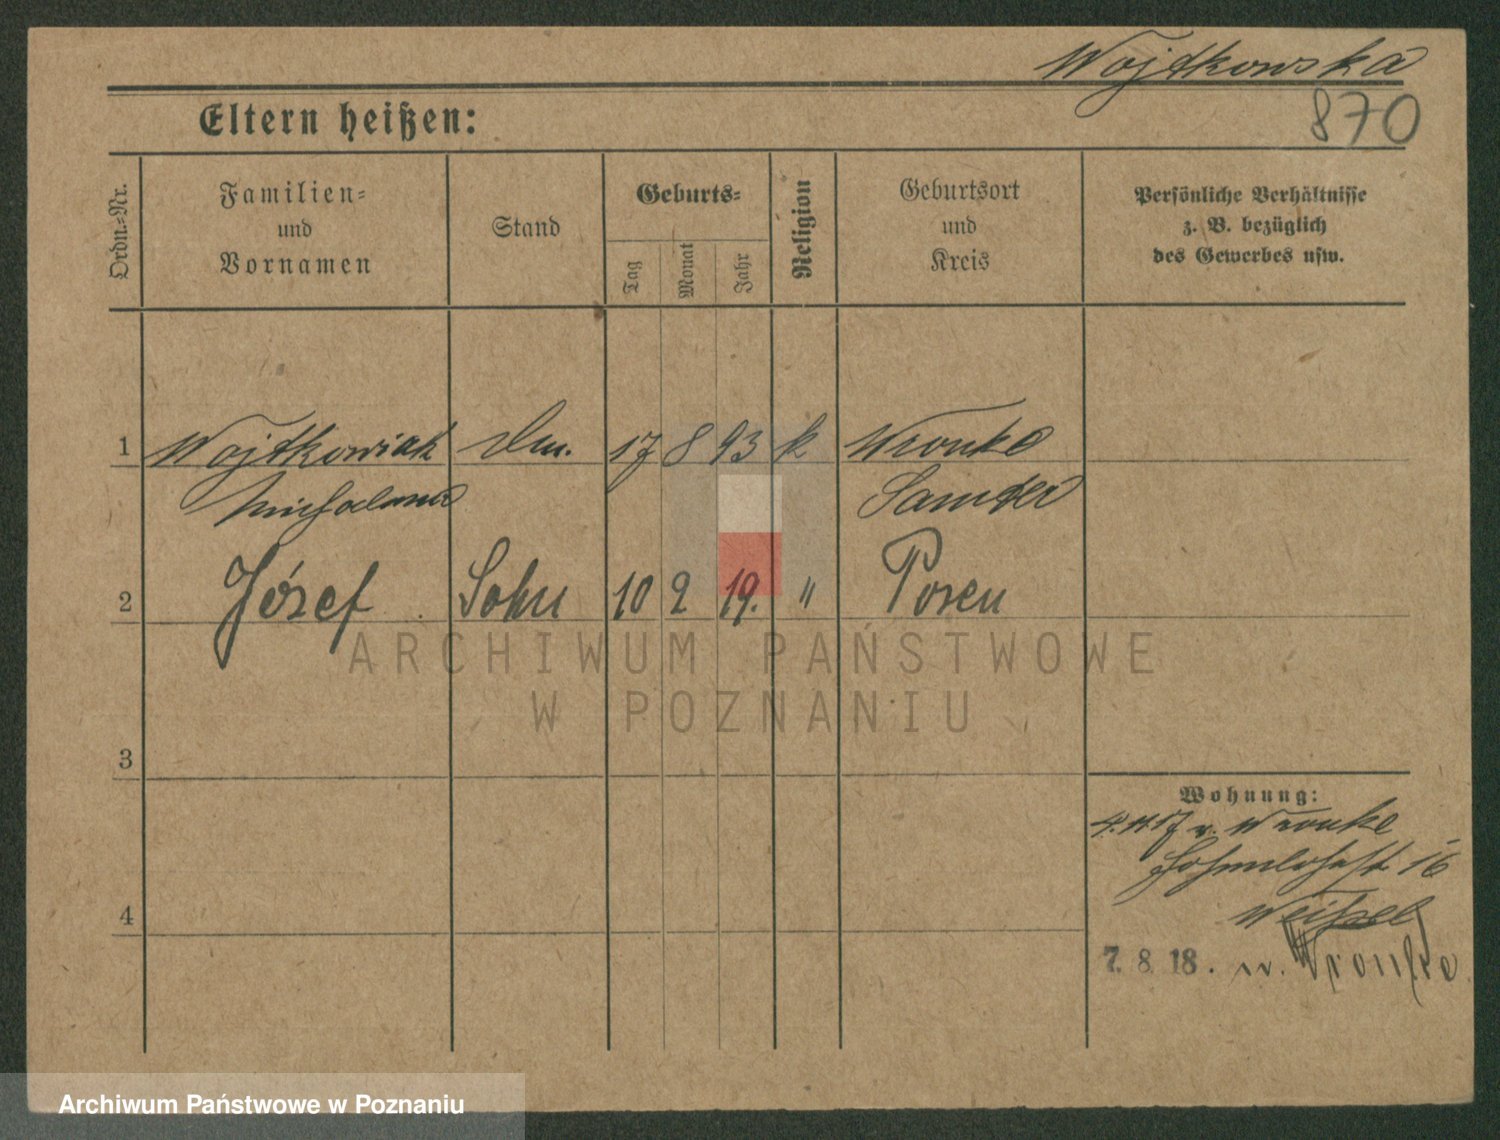 Wojtkowska
870
Eltern heißen:
Ordn.=Nr.
Familien=
und
Vornamen
Stand
Geburts=
Tag
Monat
Jahr
Religion
Geburtsort
und
Kreis
Persönliche Verhältnisse
z. B. bezüglich
des Gewerbes usw.
1 Wojtkowiak Dm. 17 8 93 k Wronke
Samter
2 Józef Sohn 10 2 19. " Posen
3
4
Wohnung:
4.11.17 v. Wronke
16
7. 8. 18. n. Wronke
ARCHIWUM PAŃSTWOWE
W POZNANIU
Archiwum Państwowe w Poznaniu